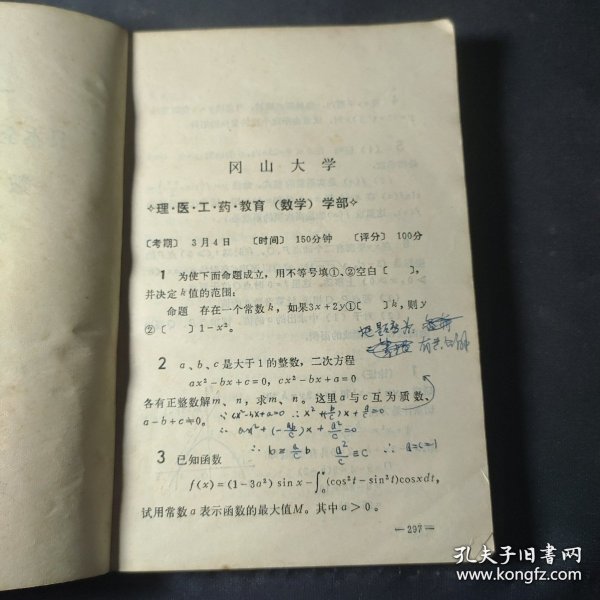 冈山大学
✧理·医·工·药·教育（数学）学部✧
〔考期〕 3月4日 〔时间〕 150分钟 〔评分〕 100分
1 为使下面命题成立，用不等号填①、②空白〔 〕，
并决定k值的范围：
命题 存在一个常数k，如果3x＋2y①〔 〕k，则y
②〔 〕1－x²。
2 a、b、c是大于1的整数，二次方程
ax²－bx＋c＝0，cx²－bx＋a＝0
各有正整数解m、n，求m、n。这里a与c互为质数、
a－b＋c≠0。
3 已知函数
f(x)＝(1－3a²)sin x－∫₀ (cos²t－sin³t)cosxdt，
试用常数a表示函数的最大值M。其中a＞0。
—297—
孔夫子旧书网
www.kongfz.com